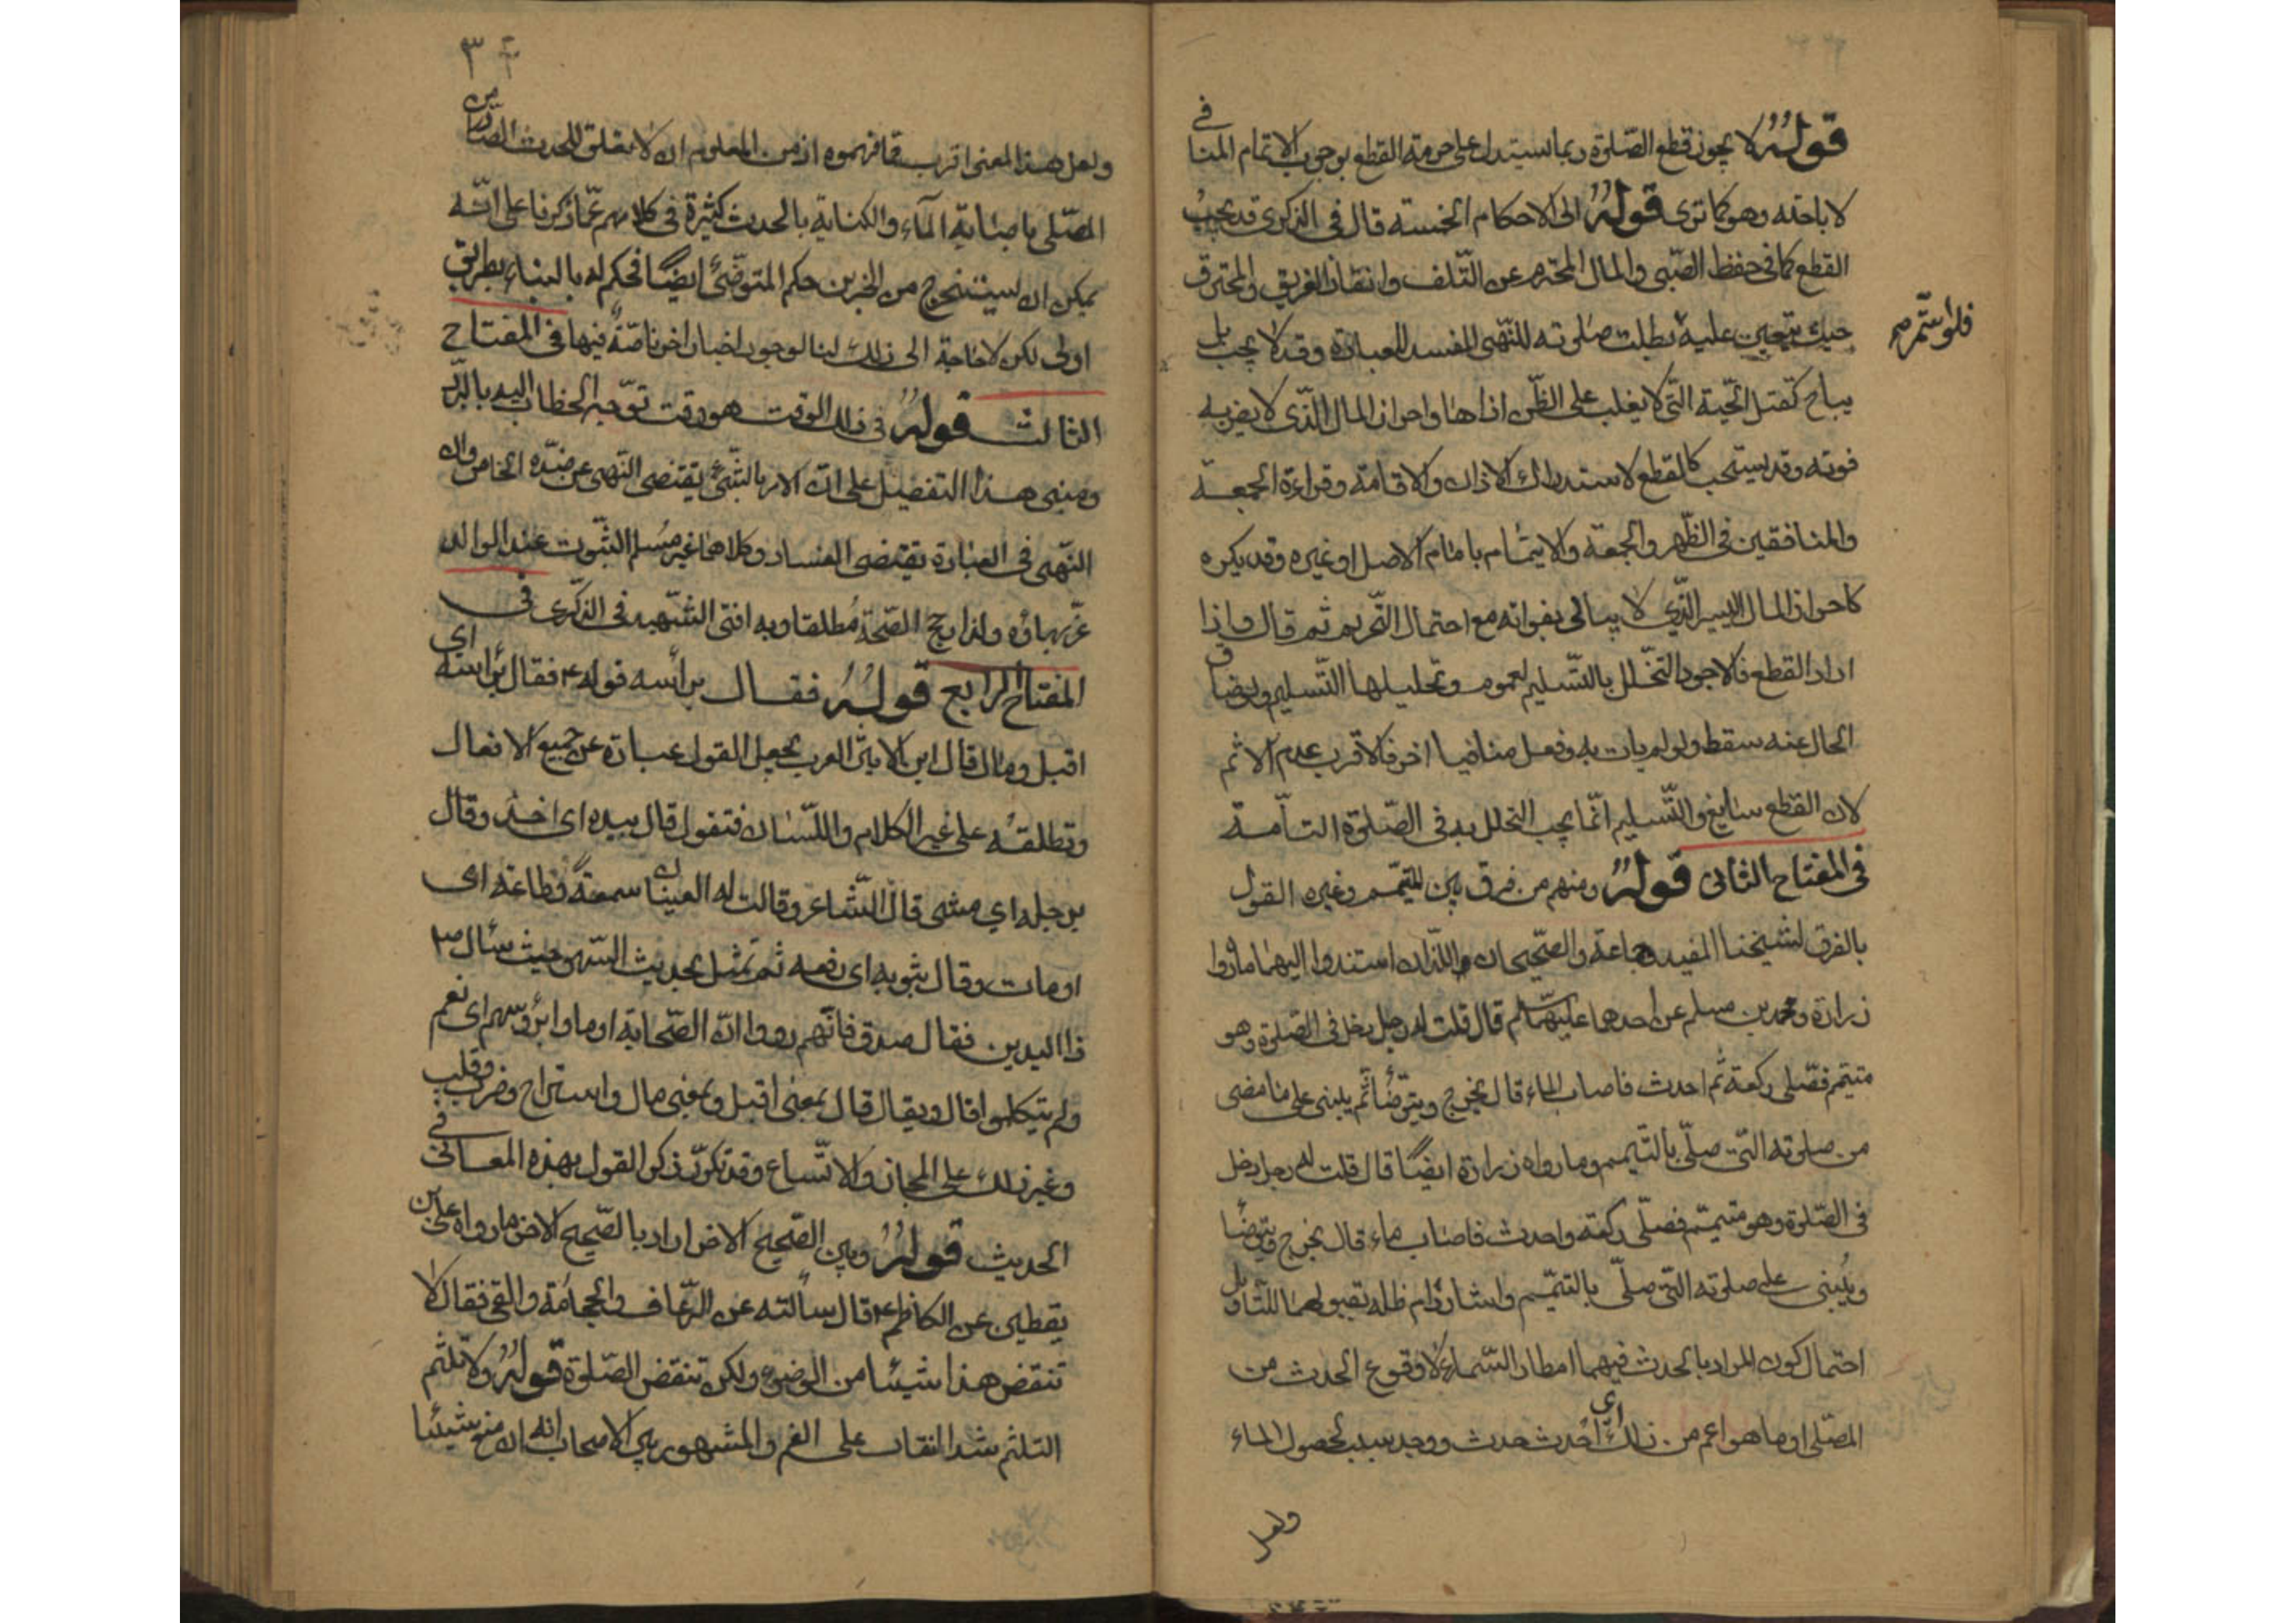 قوله لا يجوز قطع الصّلوة ربما يستدل على حرمة القطع بوجوب الاتمام المنافي
لاباحته وهو كما ترى قوله الى الاحكام الخمسة قال في الذكرى قد يجب
القطع كما في حفظ الصّبي والمال المحترم عن التّلف وانقاذ الغريق والمحترق
حيث يتعين عليه بطلت صلوته للنّهى المفسد للعبادة وقد لا يجب بل
فلو استمر صح
يباح كقتل الحيّة التّي لا يغلب على الظّن اذاها واحراز المال الّذى لا يضر به
فوته وقد يستحب كالقطع لاستدراك الاذان والاقامة وقراءة الجمعة
والمنافقين في الظّهر والجمعة والايتمام بامام الاصل او غيره وقد يكره
كاحراز المال اليسير الّذي لا يبالى بفواته مع احتمال التّحريم ثم قال واذا
اراد القطع فالاجود التّحلل بالتّسليم لعموم وتحليلها التّسليم ولو ضاق
الحال عنه سقط ولو لم يات به وفعل منافيا اخر فالاقرب عدم الاثم
لان القطع سايغ والتّسليم انّما يجب التحلل به في الصّلوة التّامة
في المفتاح الثانى قوله ومنهم من فرق بين المتيمّم وغيره القول
بالفرق لشيخنا المفيد وجماعة والصّحيحان واللّذان استندوا اليهما ما روا
زرارة ومحمد بن مسلم عن احدهما عليهما السلام قال قلت له رجل دخل في الصّلوة وهو
متيمّم فصّلى ركعة ثم احدث فاصاب الماء قال يخرج ويتوضّأ ثم يبنى على ما مضى
من صلوته التّي صلّى بالتّيمم وما رواه زرارة ايضًا قال قلت له رجل دخل
في الصّلوة وهو متيمّم فصلّى ركعة واحدث فاصاب ماء قال يخرج ويتوضأ
ويبنى على صلوته التّي صلّى بالتيمّم واشار دام ظله بقبولهما للتّأويل
احتمال كون المراد بالحدث فيهما امطار السّماء لا وقوع الحدث من
المصّلى او ما هو اعم من ذلك اي احدث حدث ووجد سبب لحصول الماء
ولعل
٣٠
ولعل هذا المعنى اقرب مما فهموه اذ من المعلوم ان لا تعلق للحدث الصّادر من
المصّلى باصابة الماء والكناية بالحدث كثيرة في كلامهم عمّا ذكرنا على انّه
يمكن ان يستخرج من الخبرين حكم المتوضّئ ايضًا فحكم له بالبناء بطريق
اولى لكن لا حاجة الى ذلك لنا لوجود اخبار اخر ناصّة فيها في المفتاح
الثالث قوله في ذلك الوقت هو وقت توّجه الخطاب اليه بالرّد
ومبنى هذا التفصيل على انّ الامر بالشّئ يقتضى النّهى عن ضدّه الخاص وان
النّهى في العبادة يقتضى الفساد وكلاهما غير مسلم الثّبوت عند الوالد
عزّ بهاؤه ولذا رجح الصّحة مُطلقا وبه افتى الشّهيد في الذكرى في
المفتاح الرابع قوله فقال برأسه قوله ع فقال برأسه اي
اقبل ومال قال ابن الاثير العرب يجعل القول عبارة عن جميع الافعال
وتطلقه على غير الكلام واللّسان فتقول قال بيده اى اخذ وقال
برجله اي مشى قال الشّاعر وقالت له العينان سمعةً وطاعة اى
اومات وقال بثوبه اى رفعه ثم تمثل بحديث السّهو حيث سئال ص
ذا اليدين فقال صدق فانّهم رووا انّ الصّحابة اوماوا برؤسّهم اى نعم
ولم يتكلموا قال ويقال قال بمعنى اقبل وبمعنى مال واستراح وضرب وقلب
وغير ذلك على المجاز والاتّساع وقد تكرّر ذكر القول بهذه المعانى في
الحديث قوله وبين الصّحيح الاخر اراد بالصّحيح الاخر ما رواه على بن
يقطين عن الكاظم ع قال سالته عن الرّعاف والحجامة والقئ فقال لا
تنقض هذا شيئا من الوضوء ولكن تنقض الصّلوة قوله ولا تلثم
التلثم شد النقاب على الفم والمشهور بين الاصحاب انه ان منع شيئا